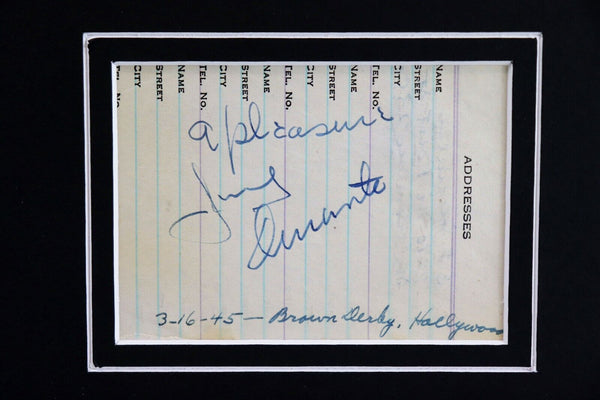 ADDRESSES
NAME
STREET
CITY
TEL. NO.
NAME
STREET
CITY
TEL. NO.
NAME
STREET
CITY
TEL. NO.
NAME
STREET
CITY
TEL. NO.
a pleasure
Jimmy
Durante
3-16-45 — Brown Derby, Hollywood